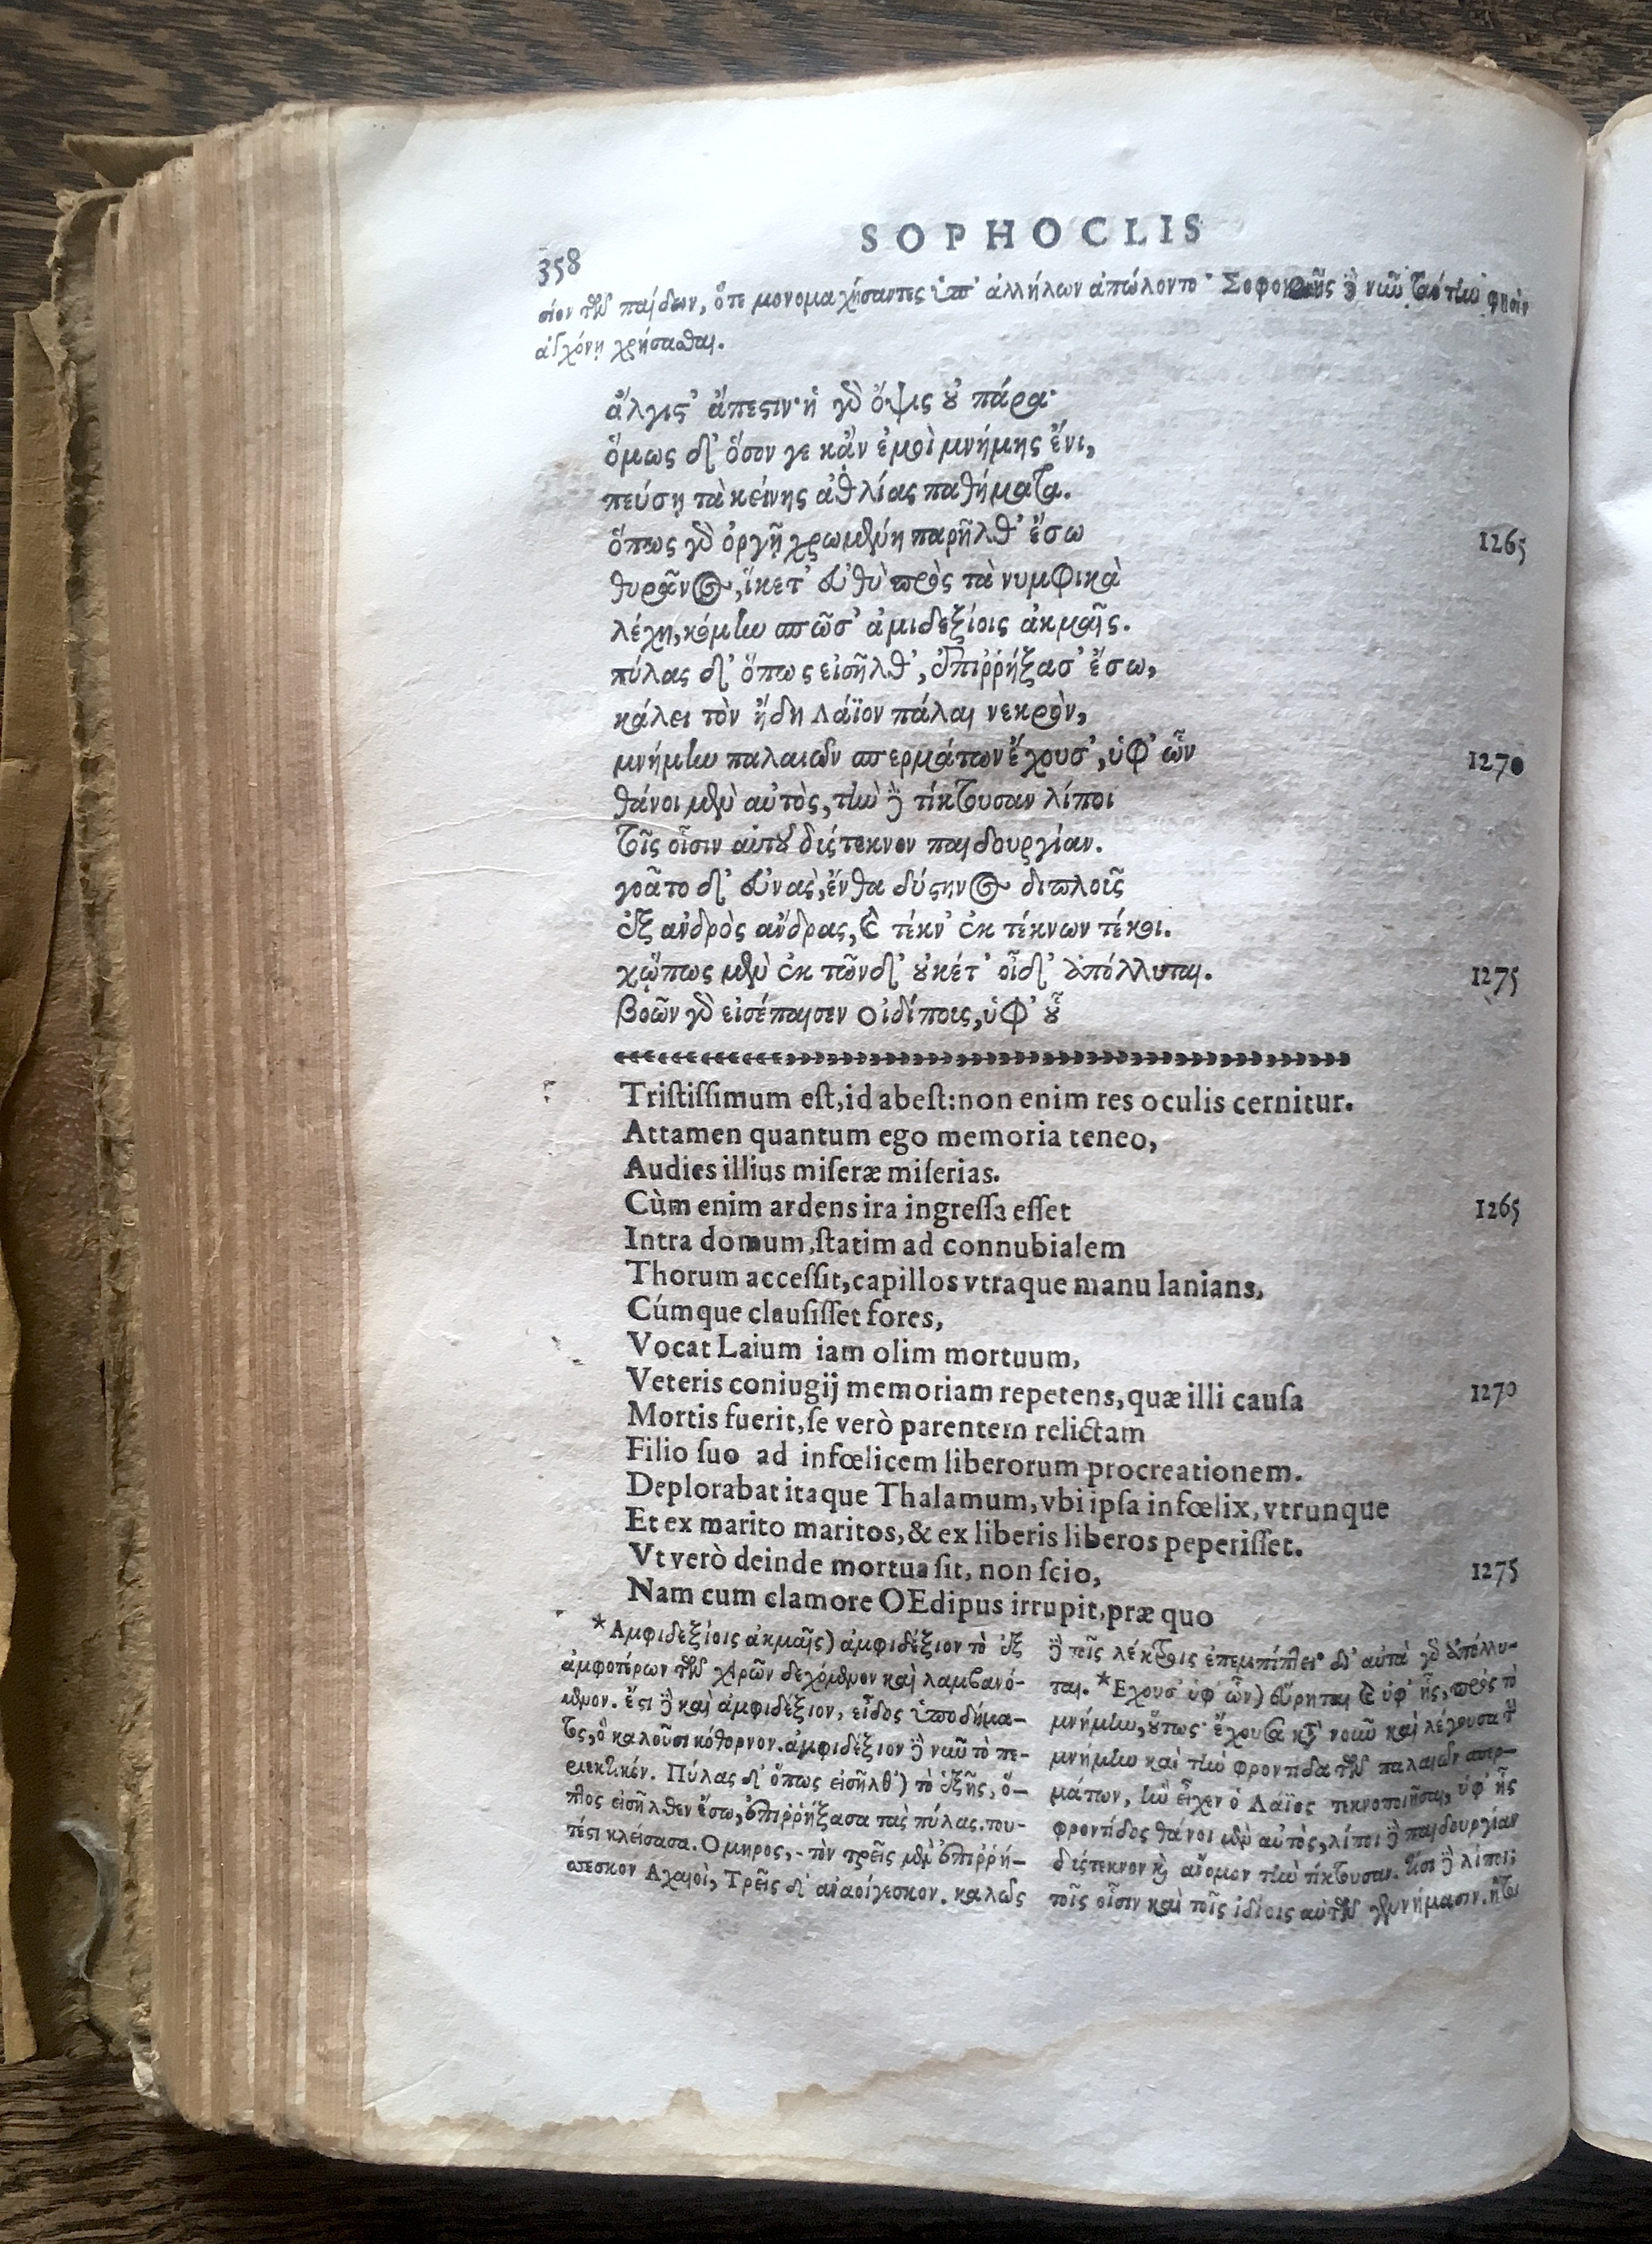 358
SOPHOCLIS
σίον τῶν παίδων, ὅτε μονομαχήσαντες ὑπ' ἀλλήλων ἀπώλοντο· Σοφοκλῆς δὲ νῦν ταύτην φησὶν
ἀγχόνῃ χρήσασθαι.
ἄλγιστ' ἄπεστιν· ἡ γὰρ ὄψις οὐ πάρα·
ὅμως δ' ὅσον γε κἂν ἐμοὶ μνήμης ἔνι,
πεύσῃ τὰ κείνης ἀθλίας παθήματα.
ὅπως γὰρ ὀργῇ χρωμένη παρῆλθ' ἔσω
1265
θυρῶνος, ἵκετ' εὐθὺ πρὸς τὰ νυμφικὰ
λέχη, κόμην σπῶσ' ἀμιδεξίοις ἀκμαῖς.
πύλας δ' ὅπως εἰσῆλθ', ἐπιῤῥήξασ' ἔσω,
κάλει τὸν ἤδη Λάϊον πάλαι νεκρὸν,
μνήμην παλαιῶν σπερμάτων ἔχουσ', ὑφ' ὧν
1270
θάνοι μὲν αὐτὸς, τὴν δὲ τίκτουσαν λίποι
τοῖς οἷσιν αὐτοῦ δύστεκνον παιδουργίαν.
γοᾶτο δ' εὐνὰς, ἔνθα δύστηνος διπλοῖς
ἐξ ἀνδρὸς ἄνδρας, καὶ τέκν' ἐκ τέκνων τέκοι.
χὤπως μὲν ἐκ τῶνδ' οὐκέτ' οἶδ' ἀπόλλυται.
1275
βοῶν γὰρ εἰσέπαισεν Οἰδίπους, ὑφ' οὗ
Tristissimum est, id abest: non enim res oculis cernitur.
Attamen quantum ego memoria teneo,
Audies illius miseræ miserias.
Cùm enim ardens ira ingressa esset
1265
Intra domum, statim ad connubialem
Thorum accessit, capillos vtraque manu lanians,
Cúmque clausisset fores,
Vocat Laium iam olim mortuum,
Veteris coniugij memoriam repetens, quæ illi causa
1270
Mortis fuerit, se verò parentem relictam
Filio suo ad infœlicem liberorum procreationem.
Deplorabat itaque Thalamum, vbi ipsa infœlix, vtrunque
Et ex marito maritos, & ex liberis liberos peperisset.
Vt verò deinde mortua sit, non scio,
1275
Nam cum clamore OEdipus irrupit, præ quo
*Αμφιδεξίοις ἀκμαῖς) ἀμφιδέξιον τὸ ἐξ
ἀμφοτέρων τῶν χειρῶν δεχόμενον καὶ λαμβανό-
μενον. ἔστι δὲ καὶ ἀμφιδέξιον, εἶδος ὑποδήμα-
τος, ὃ καλοῦσι κόθορνον. ἀμφιδέξιον δὲ νῦν τὸ πε-
ριεκτικόν. Πύλας δ' ὅπως εἰσῆλθ') τὸ ἑξῆς, ὅ-
πως εἰσῆλθεν ἔσω, ἐπιῤῥήξασα τὰς πύλας. του-
τέστι κλείσασα. Ομηρος, - τὸν τρεῖς μὲν ἐπιῤῥή-
σσεσκον Αχαιοὶ, Τρεῖς δ' ἀναοίγεσκον. καλῶς
δὲ τοῖς λέκτροις ἐπεμπίπτει· δι' αὐτὰ γὰρ ἀπόλλυ-
ται. *Εχουσ' ὑφ' ὧν) εὕρηται καὶ ὑφ' ἧς, πρὸς τὸ
μνήμην, οὕτως· ἔχουσα κατὰ νοῦν καὶ λέγουσα τὴν
μνήμην καὶ τὴν φροντίδα τῶν παλαιῶν σπερ-
μάτων, ἣν εἶχεν ὁ Λάϊος τεκνοποιῆσαι, ὑφ' ἧς
φροντίδος θάνοι μὲν αὐτὸς, λίποι δὲ παιδουργίαν
δύστεκνον καὶ ἄνομον τὴν τίκτουσαν. τίσι δὲ λίποι;
τοῖς οἷσιν καὶ τοῖς ἰδίοις αὐτῶν γεννήμασιν. ἤτοι